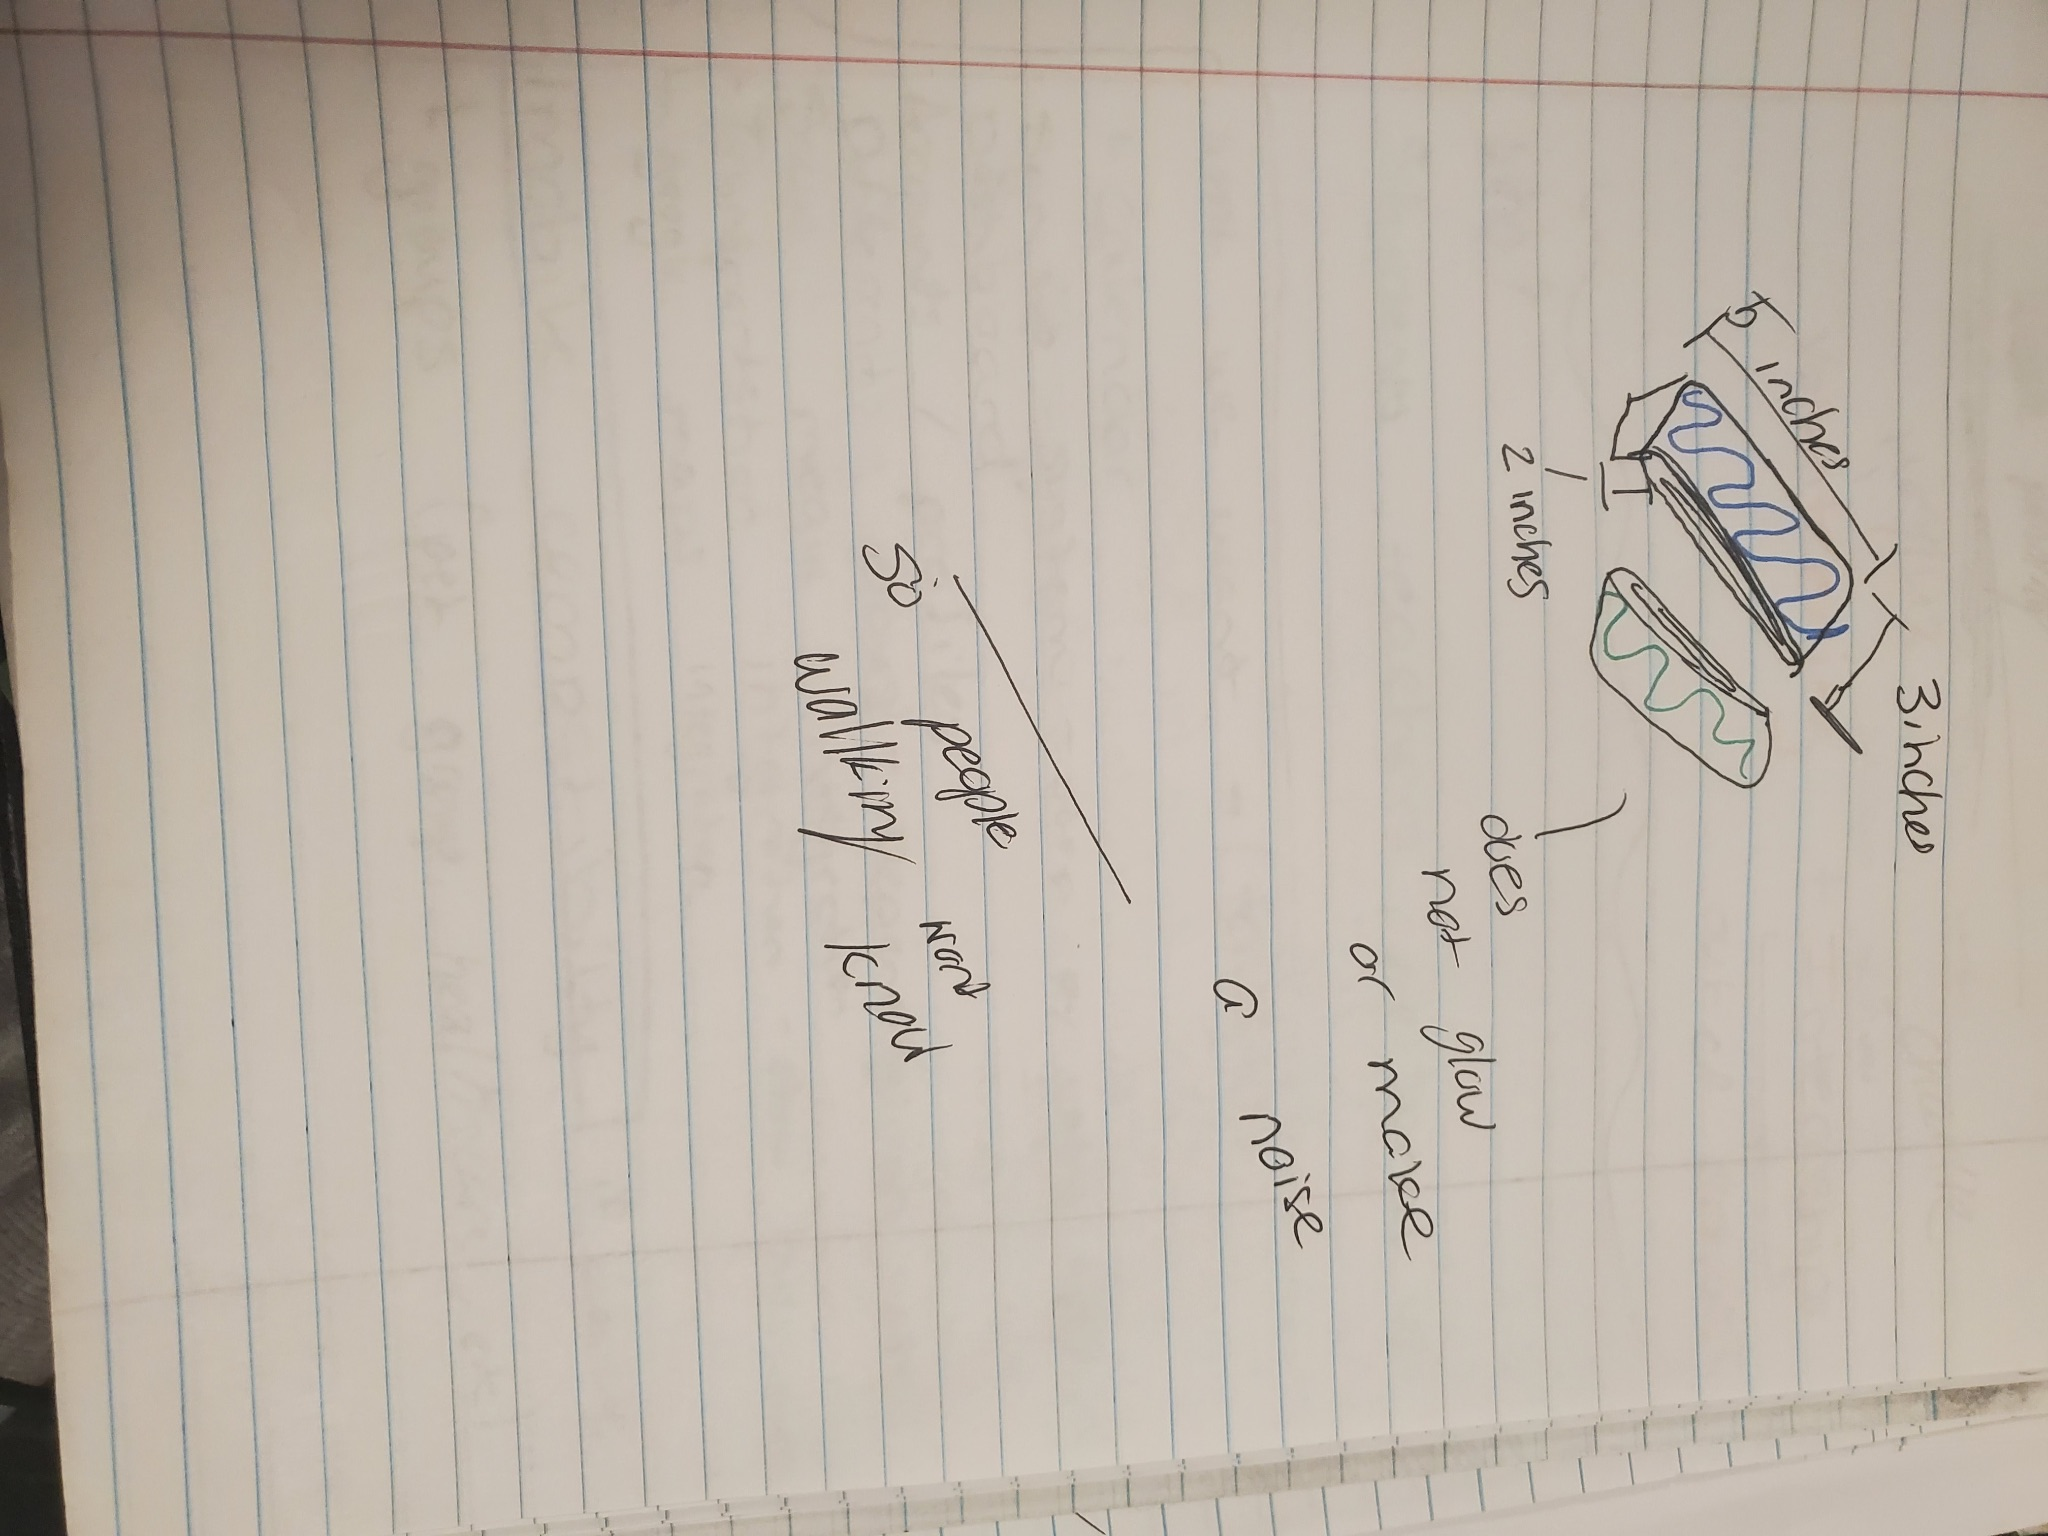 inches
3 inches
2 inches
does
not glow
or make
a noise
So people wont
walking know